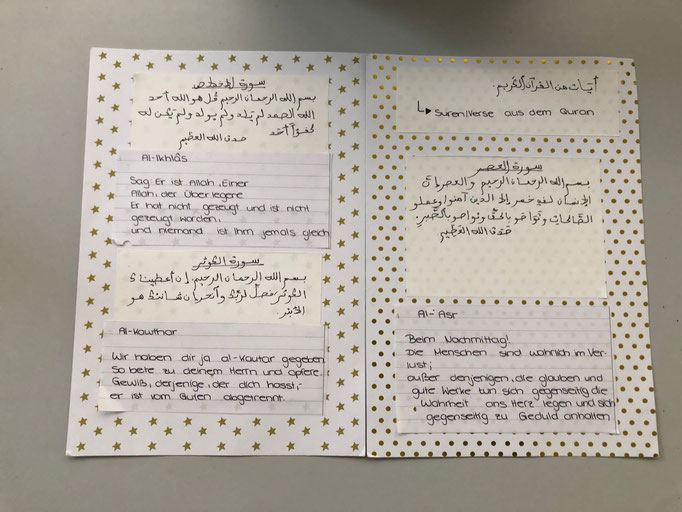 سورة الإخلاص
بسم الله الرحمان الرحيم قل هو الله أحد
الله الصمد لم يلد ولم يولد ولم يكن له
كفوا أحد صدق الله العظيم
Al-Ikhlâs
Sag: Er ist Allah, Einer
Allah, der Überlegene
Er hat nicht gezeugt und ist nicht
gezeugt worden,
und niemand ist Ihm jemals gleich
سورة الكوثر
بسم الله الرحمان الرحيم إن أعطيناك
الكوثر فصل لربك وأنحر إن شانئك هو
الأبتر.
Al-Kawthar
Wir haben dir ja al-Kautar gegeben
So bete zu deinem Herrn und opfere.
Gewiß, derjenige, der dich hasst,
er ist vom Guten abgetrennt.
أيات من القرآن الكريم.
Suren/Verse aus dem Quran
سورة العصر
بسم الله الرحمان الرحيم والعصر إن
الإنسان لفي خسر إلا الذين آمنوا وعملو
الصالحات وتواصو بالحق وتواصو بالصبر.
صدق الله العظيم
Al-'Asr
Beim Nachmittag!
Die Menschen sind wahrlich im Ver-
lust;
außer denjenigen, die glauben und
gute Werke tun sich gegenseitig die
Wahrheit ans Herz legen und sich
gegenseitig zu Geduld anhalten